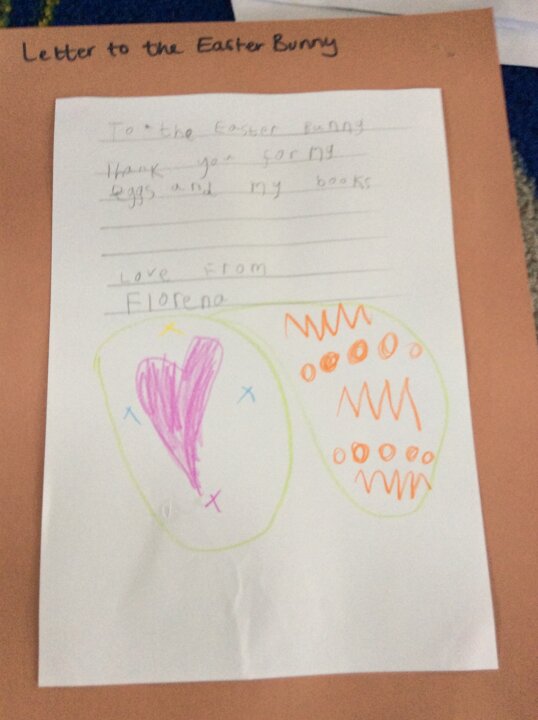 Letter to the Easter Bunny
To the Easter Bunny
Thank you for my
eggs and my books
Love From
Florena